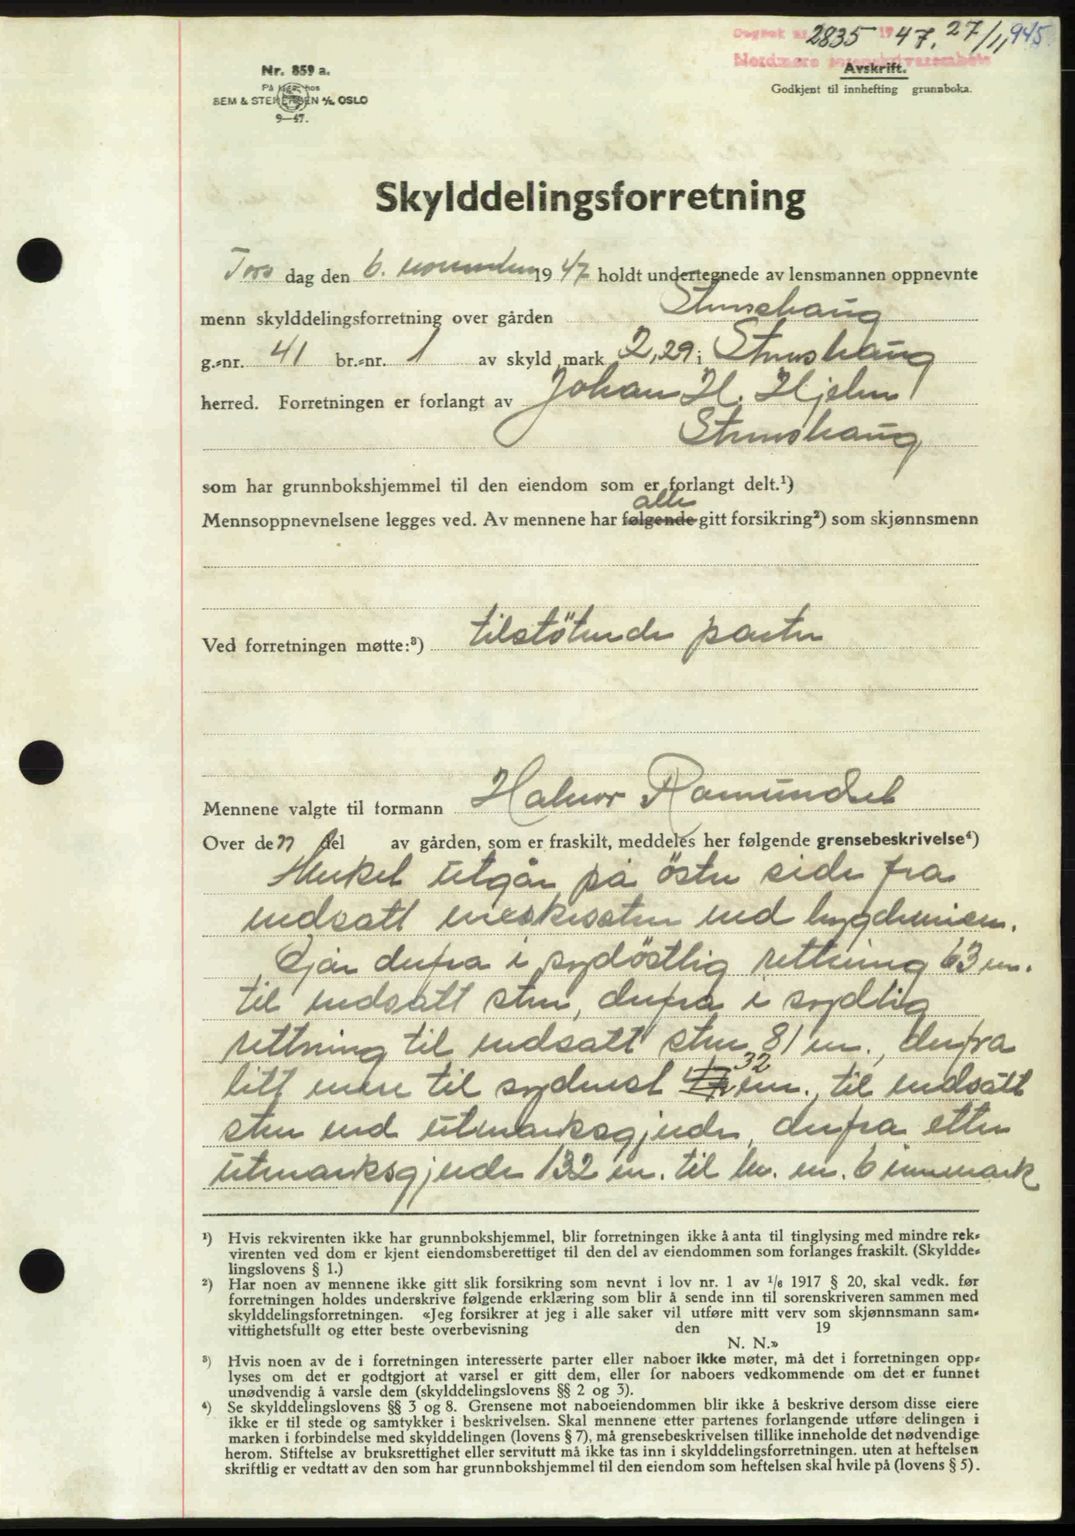 Dagbok nr. 2835 1947. 27/11 945
Nordmøre sorenskriverembete
Nr. 859 a.
På lager hos
SEM & STENERSEN A/S, OSLO
9—47.
Avskrift.
Godkjent til innhefting grunnboka.
Skylddelingsforretning
Tors dag den 6. november 1947 holdt undertegnede av lensmannen oppnevnte
menn skylddelingsforretning over gården Strusshaug
g.-nr. 41 br.-nr. 1 av skyld mark 2,29 i Strusshaug
herred. Forretningen er forlangt av Johan H. Hjelm
Strusshaug
som har grunnbokshjemmel til den eiendom som er forlangt delt.¹)
alle
Mennsoppnevnelsene legges ved. Av mennene har følgende gitt forsikring²) som skjønnsmenn
Ved forretningen møtte:³) tilstötende parter
Mennene valgte til formann Halvor Ramundset
Over den del av gården, som er fraskilt, meddeles her følgende grensebeskrivelse⁴)
Merket utgår på östre side fra
nedsatt merkesten ved bygdeveien.
Går derfra i sydöstlig rettning 63 m.
til nedsatt sten, derfra i sydlig
rettning til nedsatt sten 81 m., derfra
litt mere til sydvest 32 m., til nedsatt
sten ved utmarksgjerde, derfra etter
utmarksgjerde 132 m. til br. nr. 6 innmark
¹) Hvis rekvirenten ikke har grunnbokshjemmel, blir forretningen ikke å anta til tinglysing med mindre rek-
virenten ved dom er kjent eiendomsberettiget til den del av eiendommen som forlanges fraskilt. (Skyldde-
lingslovens § 1.)
²) Har noen av mennene ikke gitt slik forsikring som nevnt i lov nr. 1 av 1/6 1917 § 20, skal vedk. før
forretningen holdes underskrive følgende erklæring som blir å sende inn til sorenskriveren sammen med
skylddelingsforretningen. «Jeg forsikrer at jeg i alle saker vil utføre mitt verv som skjønnsmann sam-
vittighetsfullt og etter beste overbevisning den 19
N. N.»
³) Hvis noen av de i forretningen interesserte parter eller naboer ikke møter, må det i forretningen opp-
lyses om det er godtgjort at varsel er gitt dem, eller for naboers vedkommende om det er funnet
unødvendig å varsle dem (skylddelingslovens §§ 2 og 3).
⁴) Se skylddelingslovens §§ 3 og 8. Grensene mot naboeiendommen blir ikke å beskrive dersom disse eiere
ikke er til stede og samtykker i beskrivelsen. Skal mennene etter partenes forlangende utføre delingen i
marken i forbindelse med skylddelingen (lovens § 7), må grensebeskrivelsen tillike inneholde det nødvendige
herom. Stiftelse av bruksrettighet eller servitutt må ikke tas inn i skylddelingsforretningen. uten at heftelsen
skriftlig er vedtatt av den som har grunnbokshjemmel til den eiendom som heftelsen skal hvile på (lovens § 5).